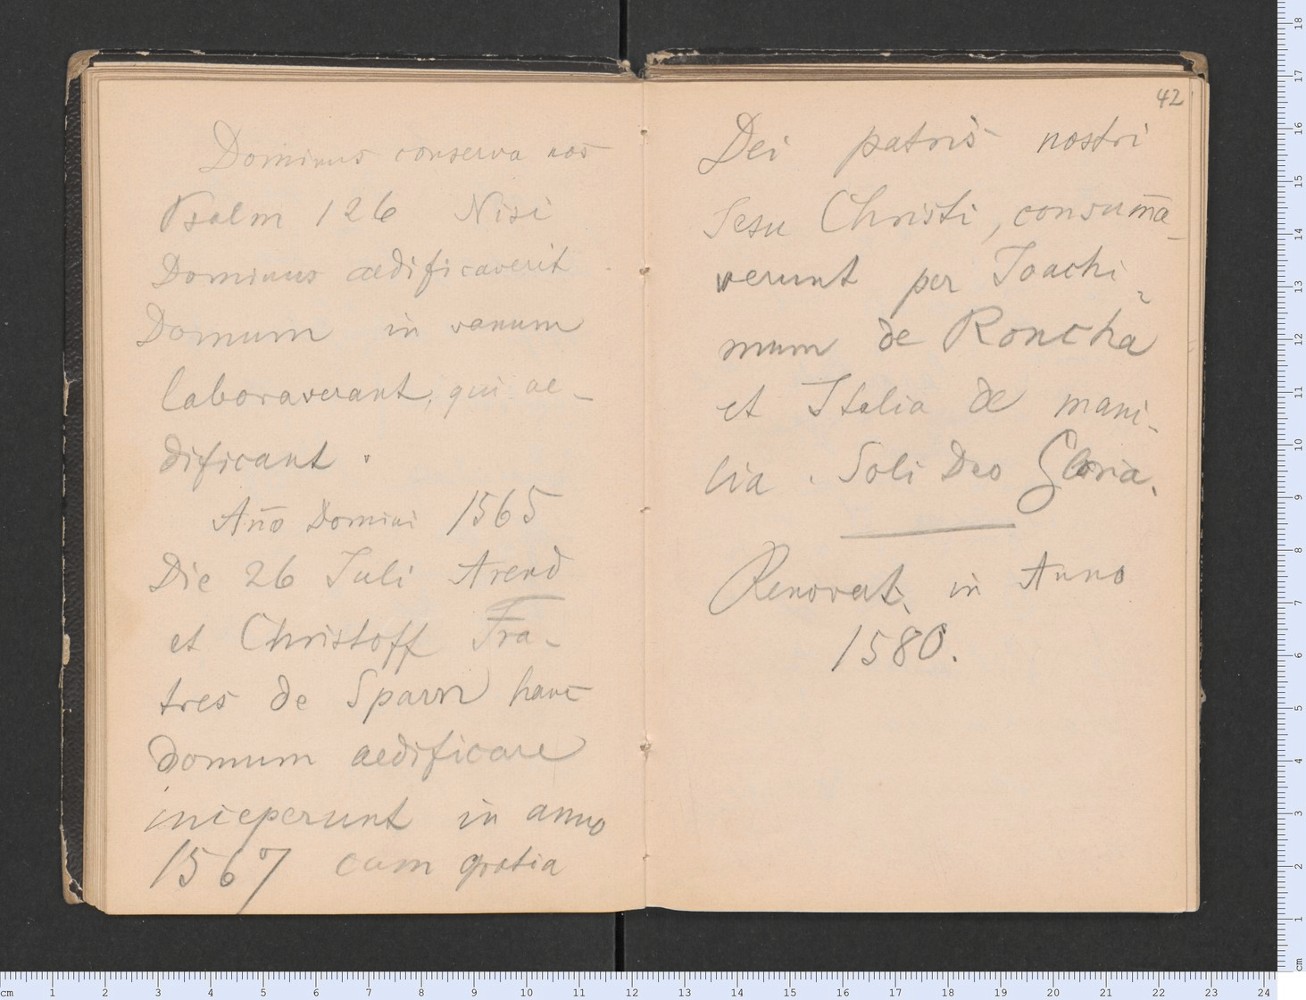 Dominus conserva nos
Psalm 126 Nisi
Dominus aedificaverit
Domum in vanum
laboraverant, qui ae-
dificant.
Año Domini 1565
Die 26 Juli Arend
et Christoff Fra-
tres de Sparr hanc
Domum aedificare
inceperunt in anno
1567 cum gratia
42
Dei patris nostri
Jesu Christi, consum̄a-
verunt per Joachi-
mum de Roncha
et Italia de mani-
lia. Soli Deo Gloria.
Renovat. in Anno
1580.